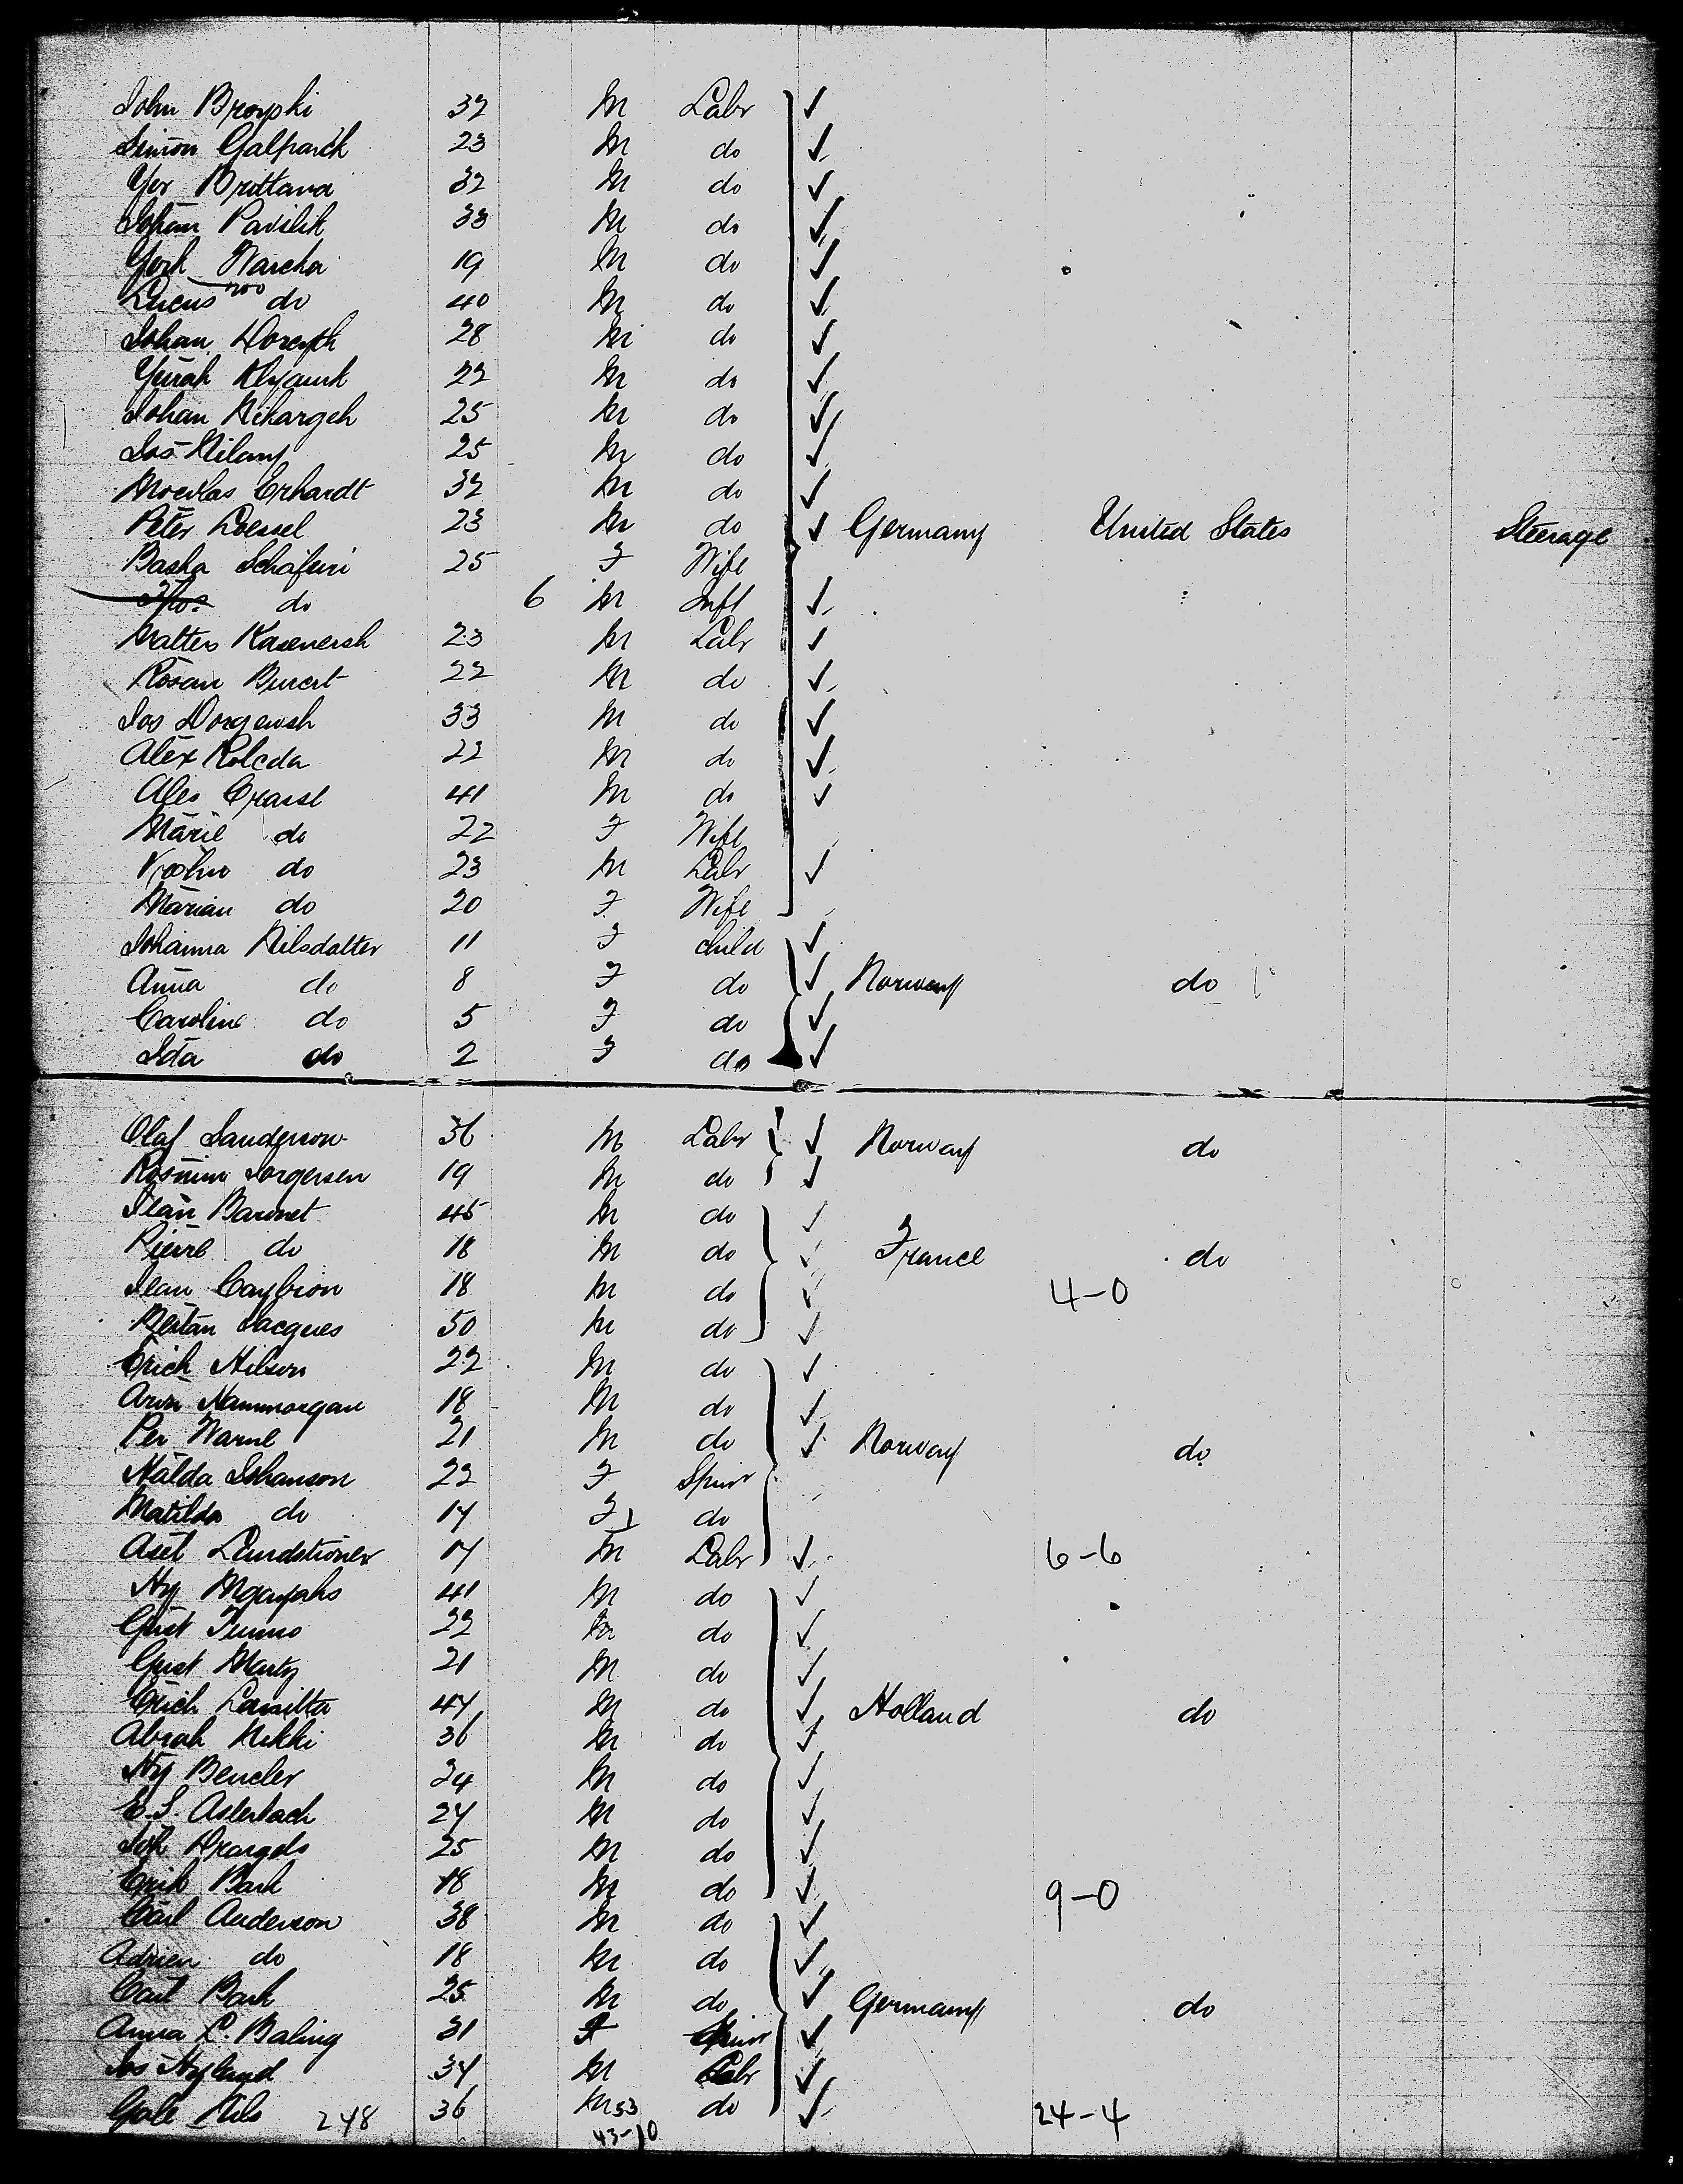 John Broyski 32 M Labr
Simon Galparik 23 M do
Yer Brittana 32 M do
Johan Pavilik 33 M do
York Narcha 19 M do
Lucus do 40 M do
Johan 28 M do
Yurah 22 M do
Johan Nikargeh 25 M do
Jos Kilany 25 M do
Nicolas Erhardt 32 M do
Peter Loessel 23 M do Germany United States Steerage
Basha Schafsini 25 F Wife
Thos do 6 M Inft
Walter Kasenersh 23 M Labr
Rosan Burert 22 M do
Jos Dorgewsh 33 M do
Alex Koleda 22 M do
Ales 41 M do
Marie do 22 F Wife
do 23 M Labr
Marian do 20 F Wife
Johanna Nilsdatter 11 F child
Anna do 8 F do Norway do
Caroline do 5 F do
Ida do 2 F do
Olaf Sanderson 36 M Labr Norway do
Jorgensen 19 M do
Jean Baronet 45 M do
Pierre do 18 M do France do
Jean Caybion 18 M do 4-0
Bertan Jacques 50 M do
Erich Nilson 22 M do
Arvn Hammorgan 18 M do
Per Warne 21 M do Norway do
Malda Johanson 22 F Spinr
Matilda do 17 F do
Axel Lundstroner 17 M Labr 6-6
Hy 41 M do
Gust Tunno 22 M do
Gust Marty 21 M do
Erich Lassilta 47 M do Holland do
Abrah Nikki 36 M do
Hy Bencler 24 M do
E. S. Asterbach 27 M do
Joh 25 M do
Erik Back 18 M do 9-0
Carl Anderson 38 M do
Adrien do 18 M do
Carl Bark 25 M do Germany do
Anna C. Baling 31 F Spinr
Jos Hyland 34 M Labr
Gale Nils 248 36 M 53 do 24-4
43-10